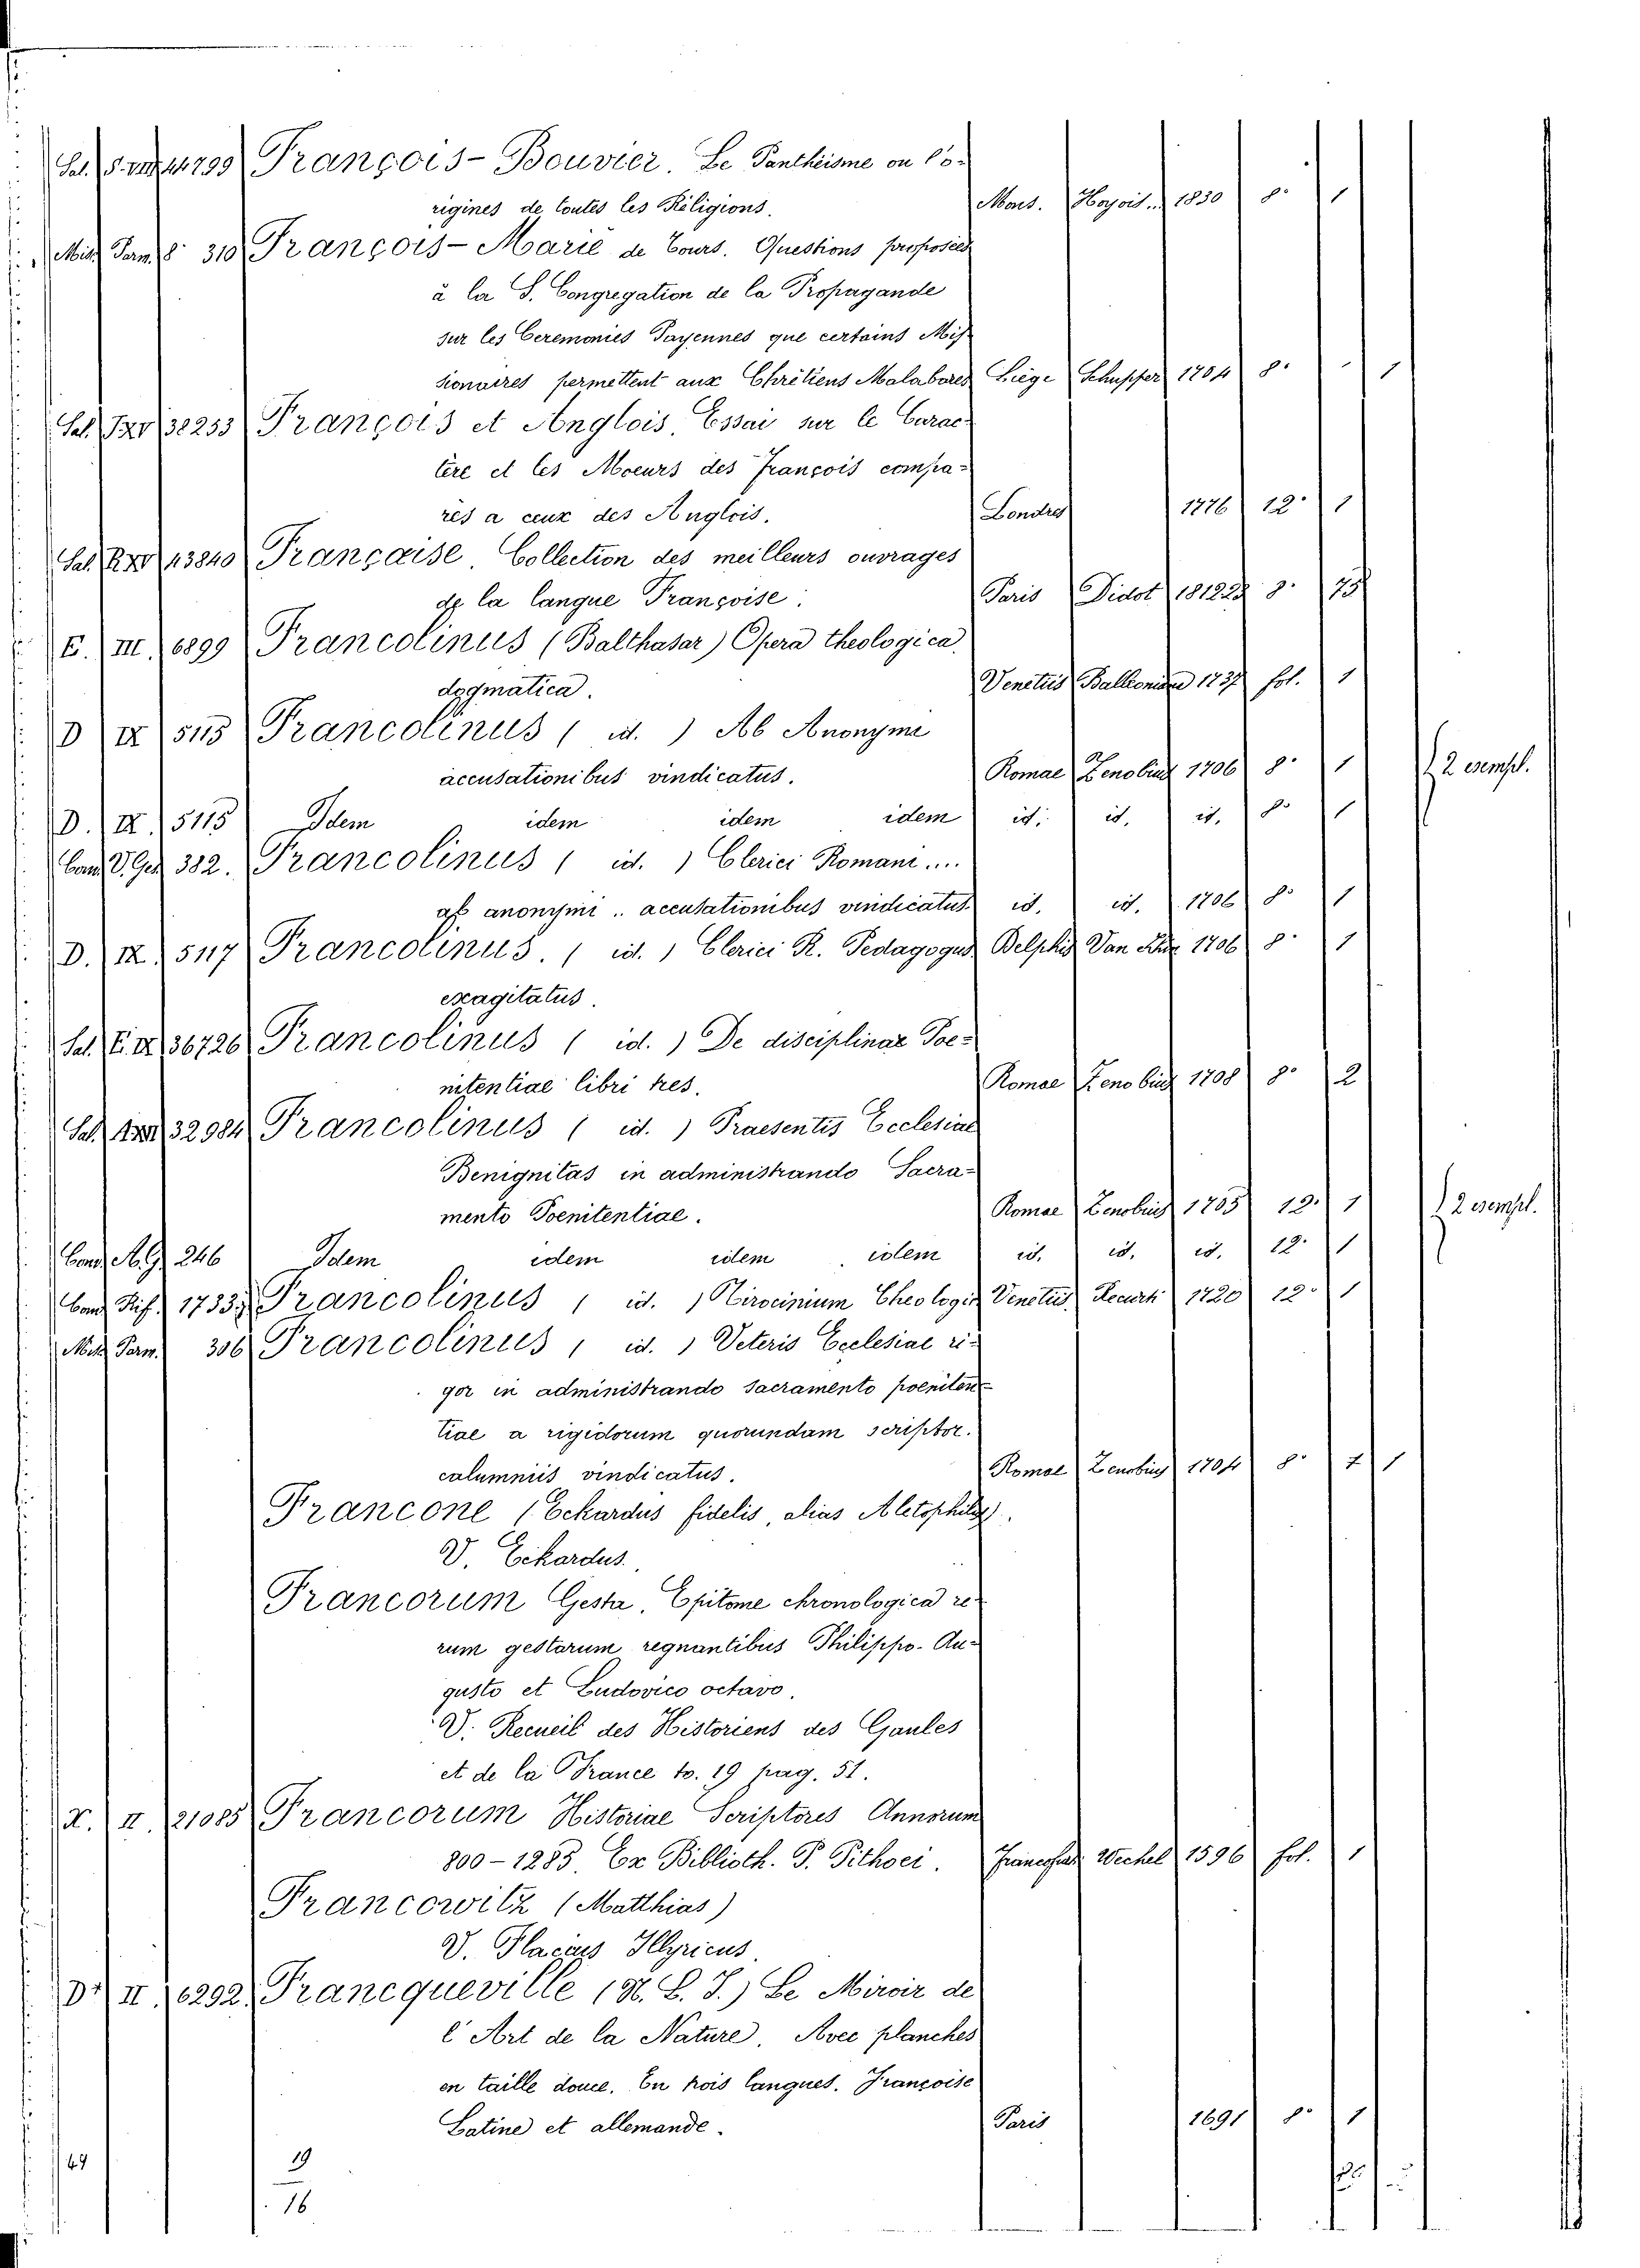 44799 François-Bouvier. Le Pantheisme ou l'o-
rigines de toutes les Réligions. Mons. Hoyois... 1830 8° 1
Mis. Parm. 8° 310 François-Marie de Tours. Questions proposées
à la S. Congregation de la Propagande
sur les Ceremonies Payennes que certains Mis-
sionaires permettent aux Chrétiens Malabares Liège Schupfer 1704 8° 1
Sal. 38253 François et Anglois. Essai sur le Carac-
tère et les Moeurs des François compa-
rés a ceux des Anglois. Londres 1776 12° 1
Sal. 43840 Française. Collection des meilleurs ouvrages
de la langue Françoise. Paris Didot 8° 75
E. III. 6899 Francolinus (Balthasar) Opera theologica
dogmatica. Venetiis Balleoniana 1737 fol. 1
D IX 5115 Francolinus ( id. ) Ab Anonyme
accusationibus vindicatus. Romae Zenobius 1706 8° 1 2 esempl.
D. IX. 5115 Idem idem idem idem id. id. id. 8° 1
382. Francolinus ( id. ) Clerici Romani....
ab anonymi .. accusationibus vindicatus id. id. 1706 8° 1
D. IX. 5117 Francolinus. ( id. ) Clerici R. Pedagogus Delphis Van 1706 8° 1
exagitatus.
Sal. E. IX 36726 Francolinus ( id. ) De disciplinae Poe-
nitentiae libri tres. Romae Zenobius 1708 8° 2
Sal. 32984 Francolinus ( id. ) Praesentis Ecclesiae
Benignitas in administrando Sacra-
mento Poenitentiae. Romae Zenobius 1705 12. 1 2 esempl.
246 Idem idem idem idem id. id. id. 12. 1
1733. Francolinus ( id. ) Tirocinium Theologic Venetiis Recurti 1720 12° 1
Mis. Parm. 306 Francolinus ( id. ) Veteris Ecclesiae ri-
gor in administrando sacramento poeniten-
tiae a rigidorum quorundam scriptor.
calumniis vindicatus. Romae Zenobius 1704 8° 1
Francone (Eckardus fidelis, alias Aletophilus).
V. Eckardus.
Francorum Gesta. Epitome chronologica re-
rum gestarum regnantibus Philippo-Au-
gusto et Ludovico octavo.
V. Recueil des Historiens des Gaules
et de la France to. 19 pag. 51.
X. II. 21085 Francorum Historiae Scriptores Annorum
800-1285. Ex Biblioth. P. Pithoei. Francofurt Wechel 1596 fol. 1
Francowitz (Matthias)
V. Flacius Illyricus.
D II 6292 Francqueville (N. L. J.) Le Miroir de
l'Art de la Nature. Avec planches
en taille douce. En trois langues. Françoise
Latine et allemande. Paris 1691 8° 1
19
16